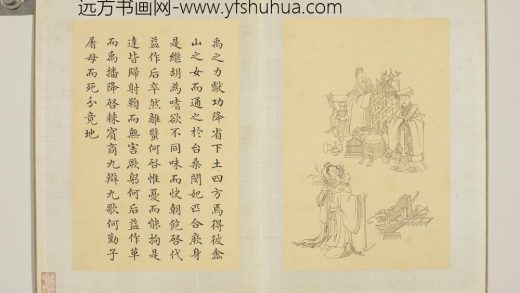 远方书画网-www.yfshuhua.com
禹之力獻功降省下土四方焉得彼嵞
山之女而通之於台桑閔妃匹合厥身
是繼胡為嗜欲不同味而快朝飽啓代
益作后卒然離蠥何啓惟憂而能拘是
達皆歸射鞫而無害厥躬何后益作革
而禹播降啓棘賓商九辯九歌何勤子
屠母而死分竟地